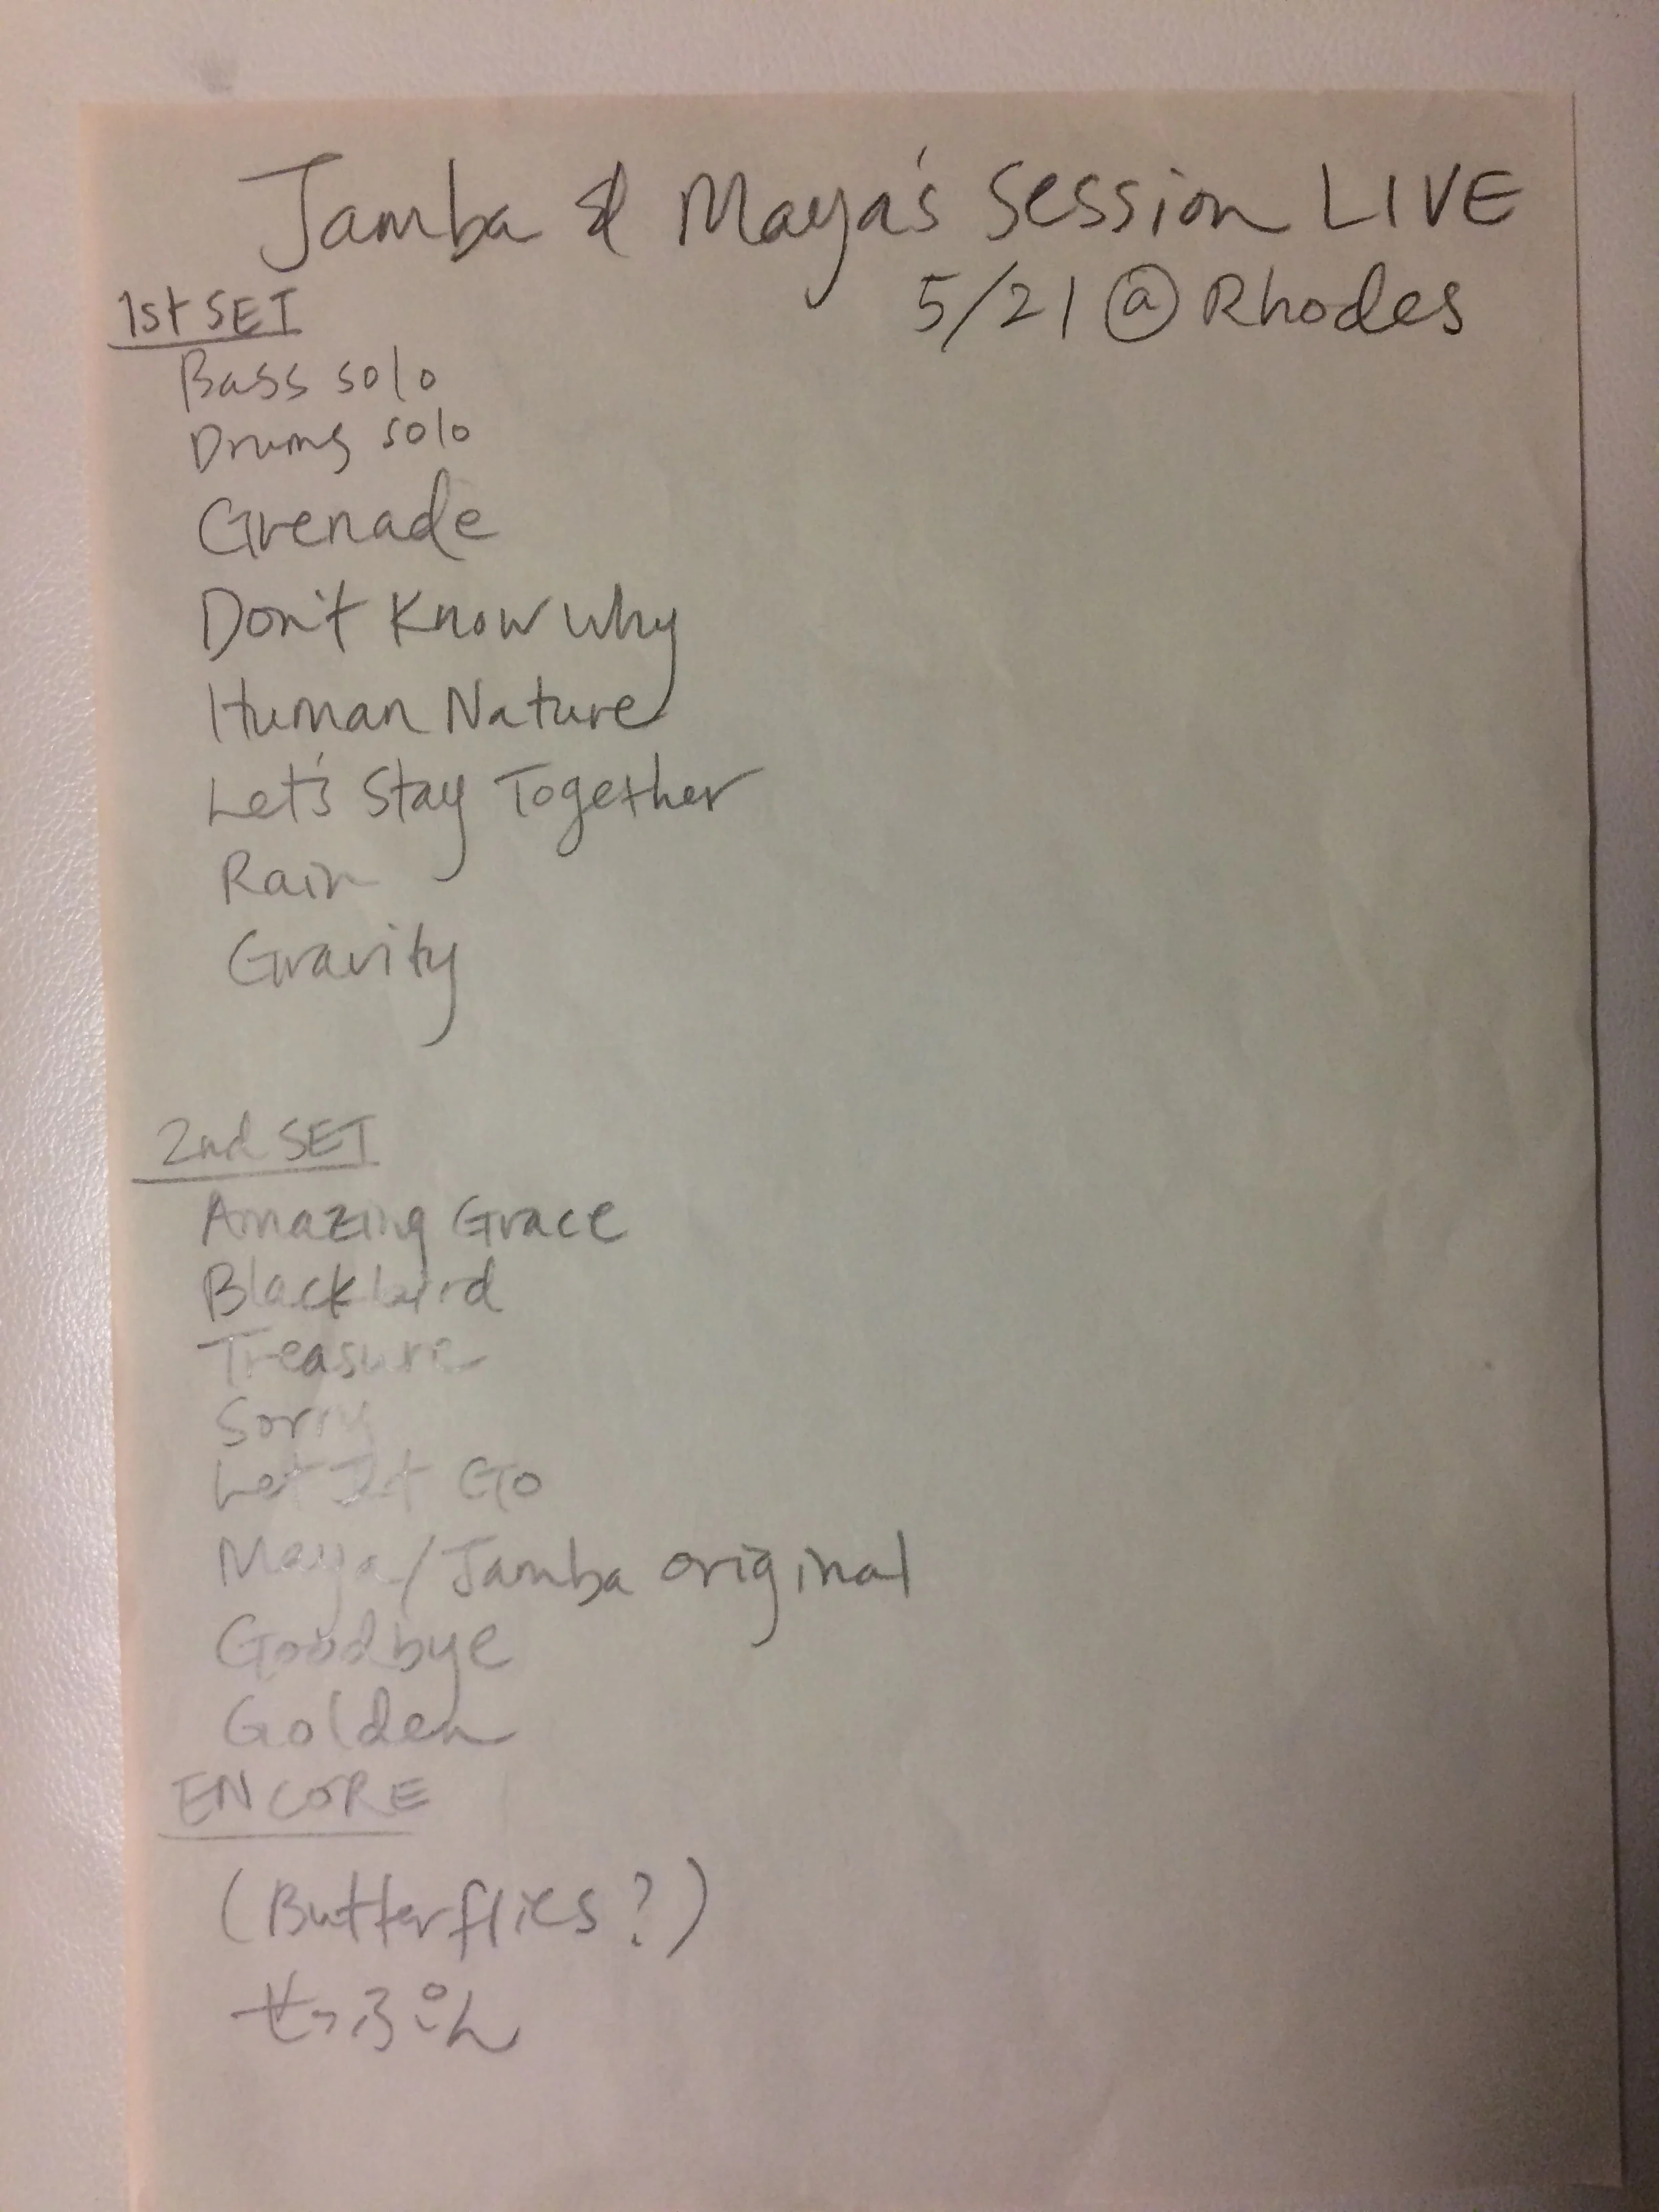 Jamba & Maya's Session LIVE
5/21 @ Rhodes
1st SET
Bass solo
Drums solo
Grenade
Don't Know Why
Human Nature
Let's Stay Together
Rain
Gravity
2nd SET
Amazing Grace
Blackbird
Treasure
Sorry
Let It Go
Maya/Jamba original
Goodbye
Golden
ENCORE
(Butterflies?)
せっぷん